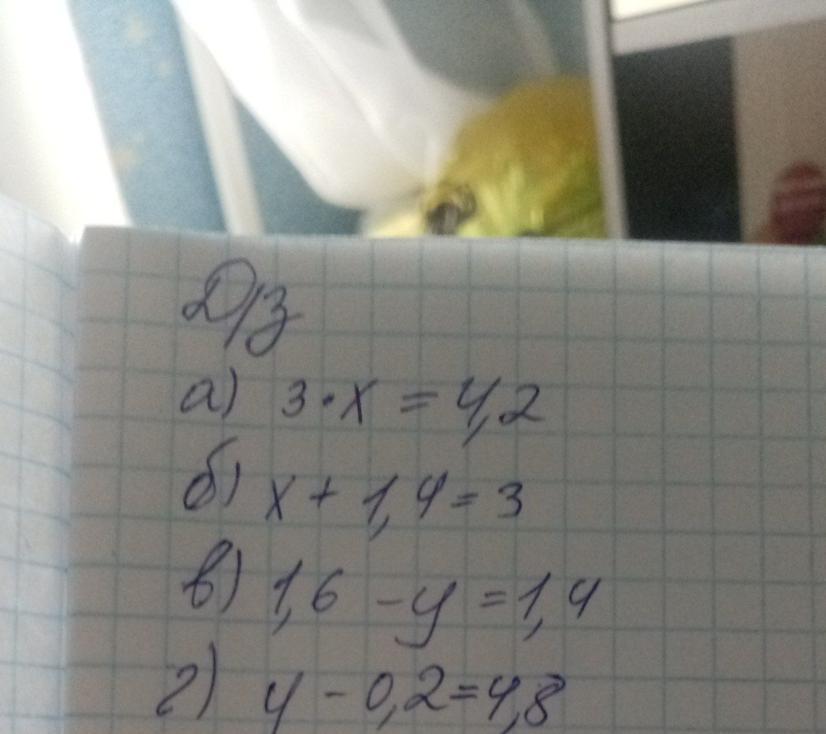 Д/з
а) 3·x = 4,2
б) x + 1,4 = 3
в) 1,6 - y = 1,4
г) y - 0,2 = 4,8